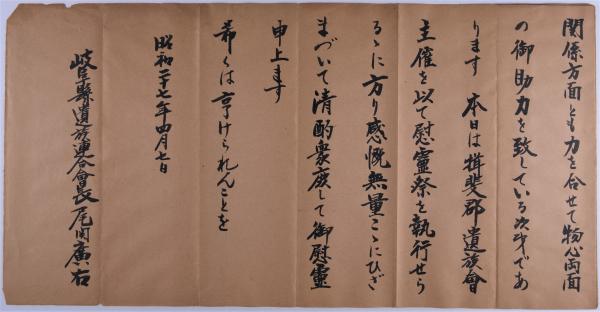 関係方面とも力を合せて物心両面
の御助力を致している次第であ
ります 本日は揖斐郡遺族會
主催を以て慰霊祭を執行せら
るゝに方り感慨無量こゝにひざ
まづいて清酌衆庶して御慰霊
申上ます
希くは享けられんことを
昭和二十七年四月七日
岐阜縣遺族連合會長 尾関廣右